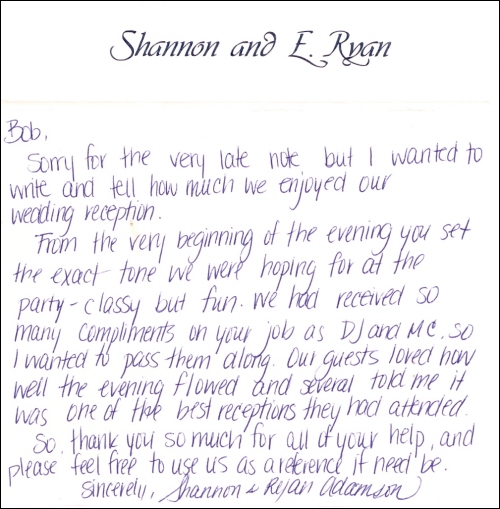 Shannon and E. Ryan
Bob,
Sorry for the very late note but I wanted to
write and tell how much we enjoyed our
wedding reception.
From the very beginning of the evening you set
the exact tone we were hoping for at the
party - classy but fun. We had received so
many compliments on your job as DJ and MC, so
I wanted to pass them along. Our guests loved how
well the evening flowed and several told me it
was one of the best receptions they had attended.
So, thank you so much for all of your help, and
please feel free to use us as a reference if need be.
Sincerely, Shannon & Ryan Adamson